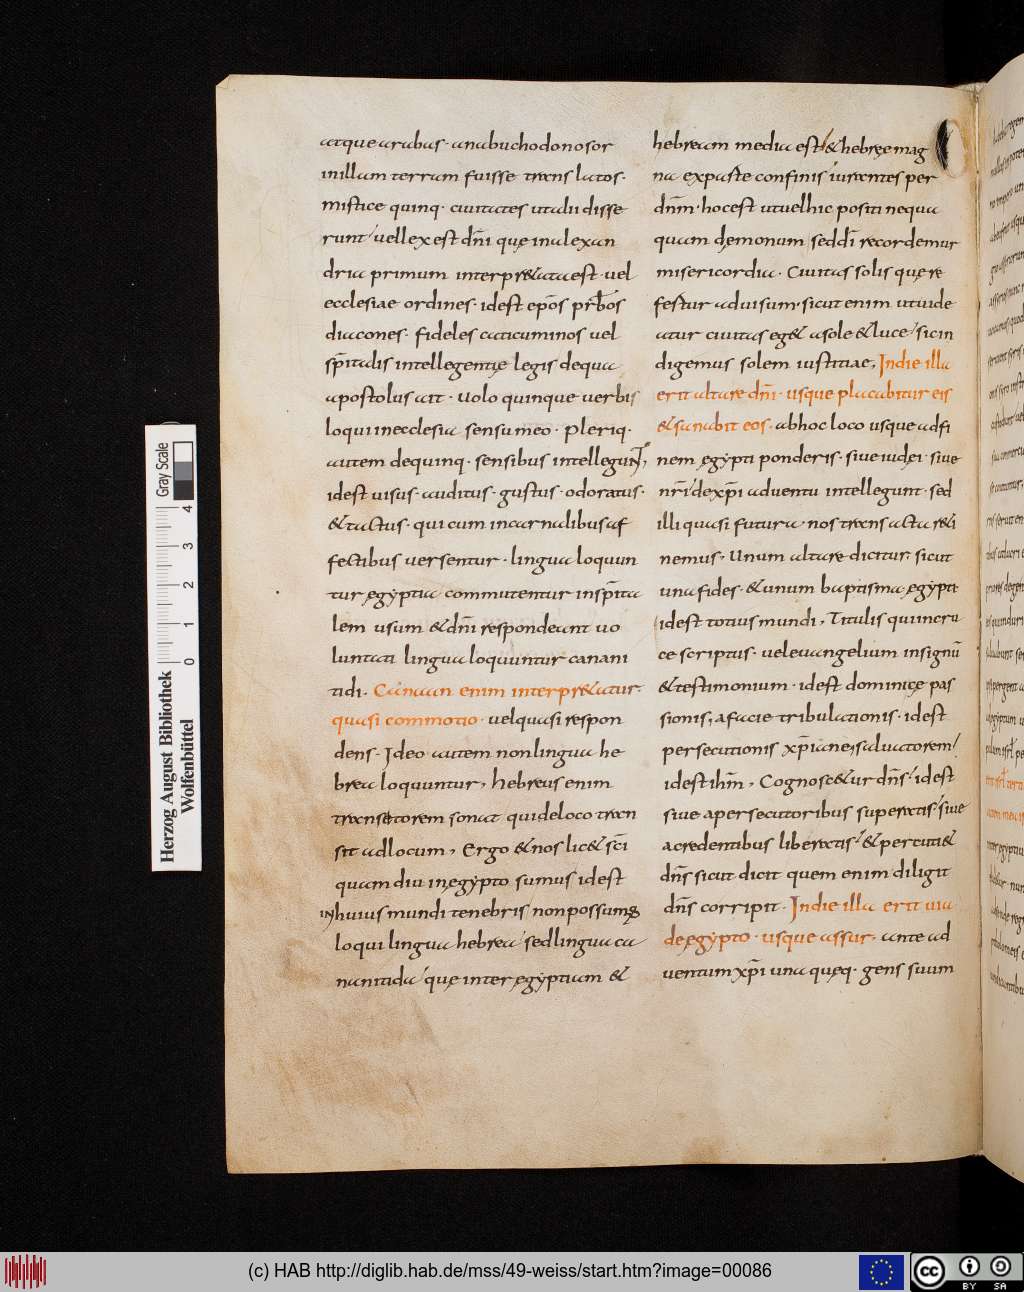 atque arabas · anabuchodonosor
inillam terram fuisse translatos ·
mistice quinq · ciuitates utalii disse
runt uellex est dn̄i quę inalexan
dria primum interpr&ata est · uel
ecclesiae ordines · idest ep̄os prb̄os
diacones · fideles caticuminos uel
sp̄italis intellegentię legis dequa
apostolus ait · uolo quinque uerbis
loqui inecclesia sensu meo · pleriq ·
autem dequinq · sensibus intellegunt,
idest uisus · auditus · gustus · odoratus ·
& tactus · qui cum incarnalibus af
fectibus uersentur · lingua loquun
tur ęgẏptia commutentur insp̄ita
lem usum & dn̄i respondeant uo
luntati lingua loquuntur canani
tidi · Canaan enim interpr&atur ·
quasi commotio · uelquasi respon
dens · Ideo autem nonlingua he
brea loquuntur, hebreus enim
transetorem sonat quideloco tran
sit adlocum, Ergo & nos lic& sc̄i
quam diu inęgẏpto sumus idest
in huius mundi tenebris nonpossumus
loqui lingua hebrea sedlingua ca
nanitida quę inter ęgẏptiam &
hebream media est & hebręe mag
na exparte confinis iurantes per
dn̄m · hocest utuelhic positi nequa
quam dęmonum sed dī recordemur
misericordia · Ciuitas solis quę re
festur aduisum · sicut enim utuide
atur ciuitas eg& asole & luce sic in
digemus solem iustitiae, In die illa
erit altare dn̄i · usque placabitur eis
& sanabit eos · abhoc loco usque adfi
nem ęgẏpti ponderis · siue iudęi · siue
nr̄i dexp̄i aduentu intellegunt · sed
illi quasi futura nos transacta r&i
nemus · Unum altare dicitur · sicut
una fides · & unum baptisma ęgẏpti
idest totius mundi, Titulis quiincru
ce scriptus · ueleuangelium insignū
& testimonium · idest dominicę pas
sionis, afacie tribulationis · idest
persecutionis xp̄iane, saluatorem
idest ihm̄, Cognosc&ur dn̄s idest
siue apersecutoribus superatis siue
acredentibus liberatis & percuti&
dn̄s sicut dicit quem enim diligit
dn̄s corripit · In die illa erit uia
de ęgẏpto · usque assur · ante ad
uentum xp̄i una quęq · gens suum
Herzog August Bibliothek
Wolfenbüttel
0 1 2 3 4
Gray Scale
(c) HAB http://diglib.hab.de/mss/49-weiss/start.htm?image=00086
cc BY SA